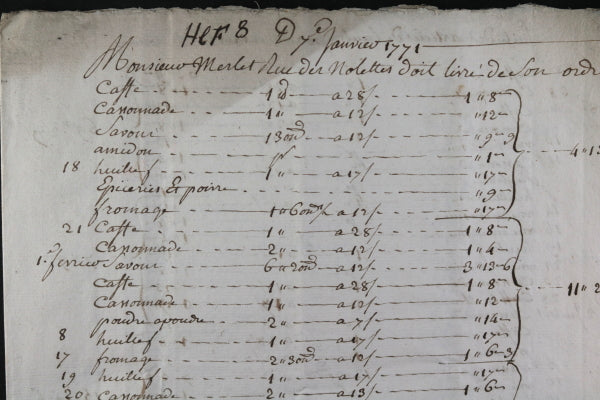 Her 8 D 7e Janvier 1771
Monsieur Merlet Rue des Nolettes doit livré de Son ordre
Caffe 1 d a 28/ 1 " 8
Cassonnade 1 " a 12/ " 12
Savon 13 ond a 12/ " 9 " 9
amidon " 1
18 huille f 1 " a 17/ " 17
Epiceries Et poivre " 9
fromage 1 " 6 ond a 12/ " 17
4 " 13
21 Caffe 1 " a 28/ 1 " 8
Cassonnade 2 " a 12/ 1 " 4
1er fevrier Savon 6 " 2 ond a 12/ 3 " 13 " 6
Caffe 1 " a 28/ 1 " 8
11 " 2
Cassonnade 1 " a 12/ " 12
poudre a poudre 2 " a 7/ " 14
8 huille f 1 " a 17/ " 17
17 fromage 2 " 3 ond a 12/ 1 " 6 " 3
19 huille f 1 " a 17/ " 17
20 Cassonnade 2 " a 13/ 1 " 6